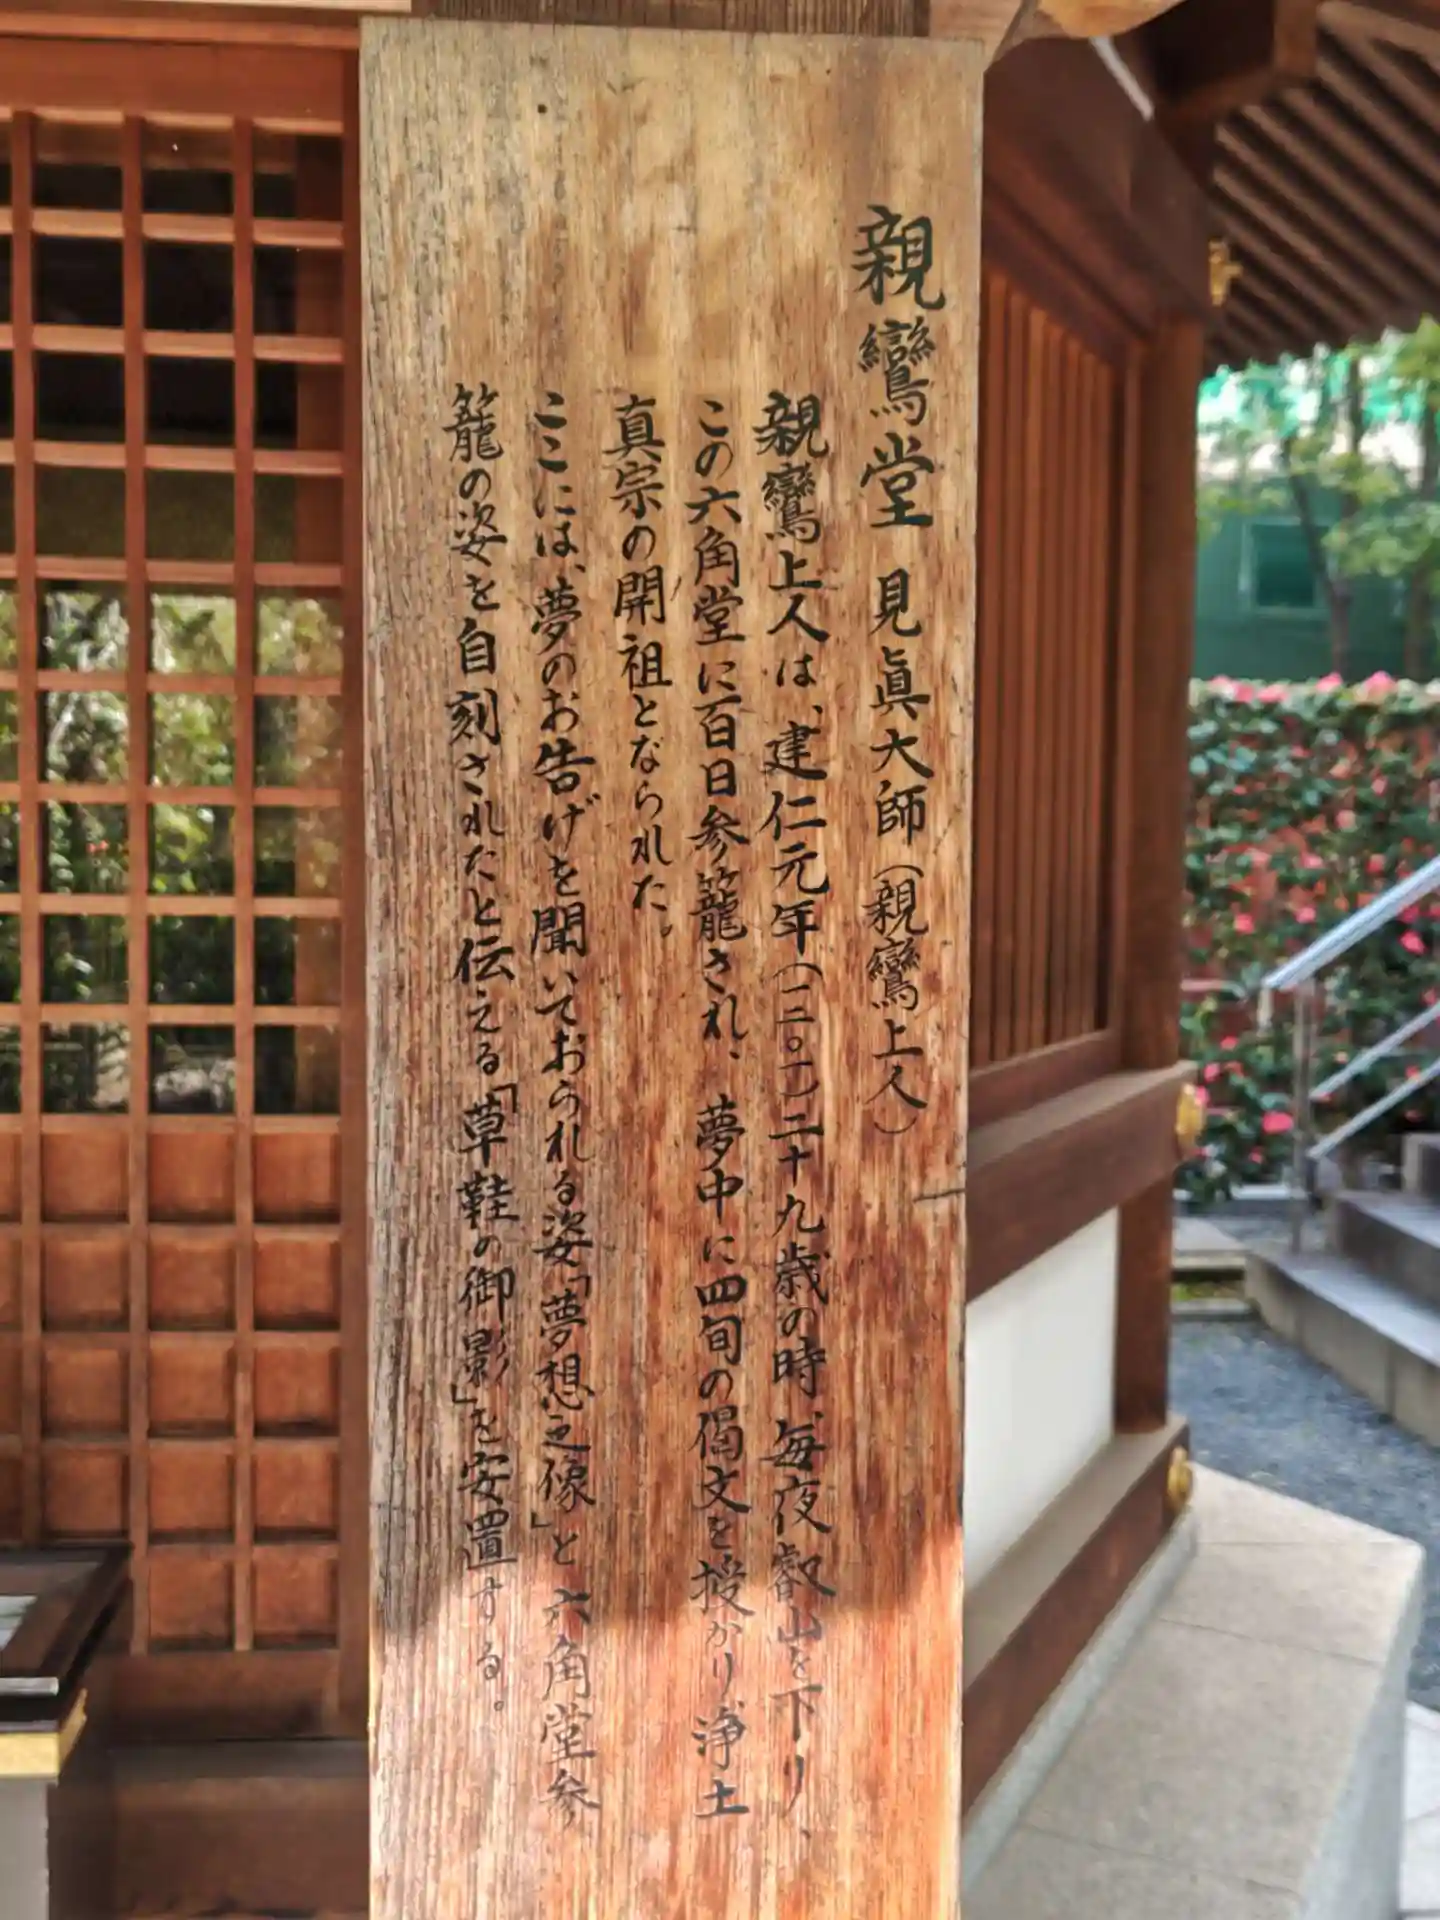 親鸞堂 見眞大師（親鸞上人）
親鸞上人は、建仁元年（一二〇一）二十九歳の時、毎夜叡山を下り、
この六角堂に百日参籠され、夢中に四旬の偈文を授かり浄土
真宗の開祖となられた。
ここには、夢のお告げを聞いておられる姿「夢想之像」と六角堂参
籠の姿を自刻されたと伝える「草鞋の御影」を安置する。